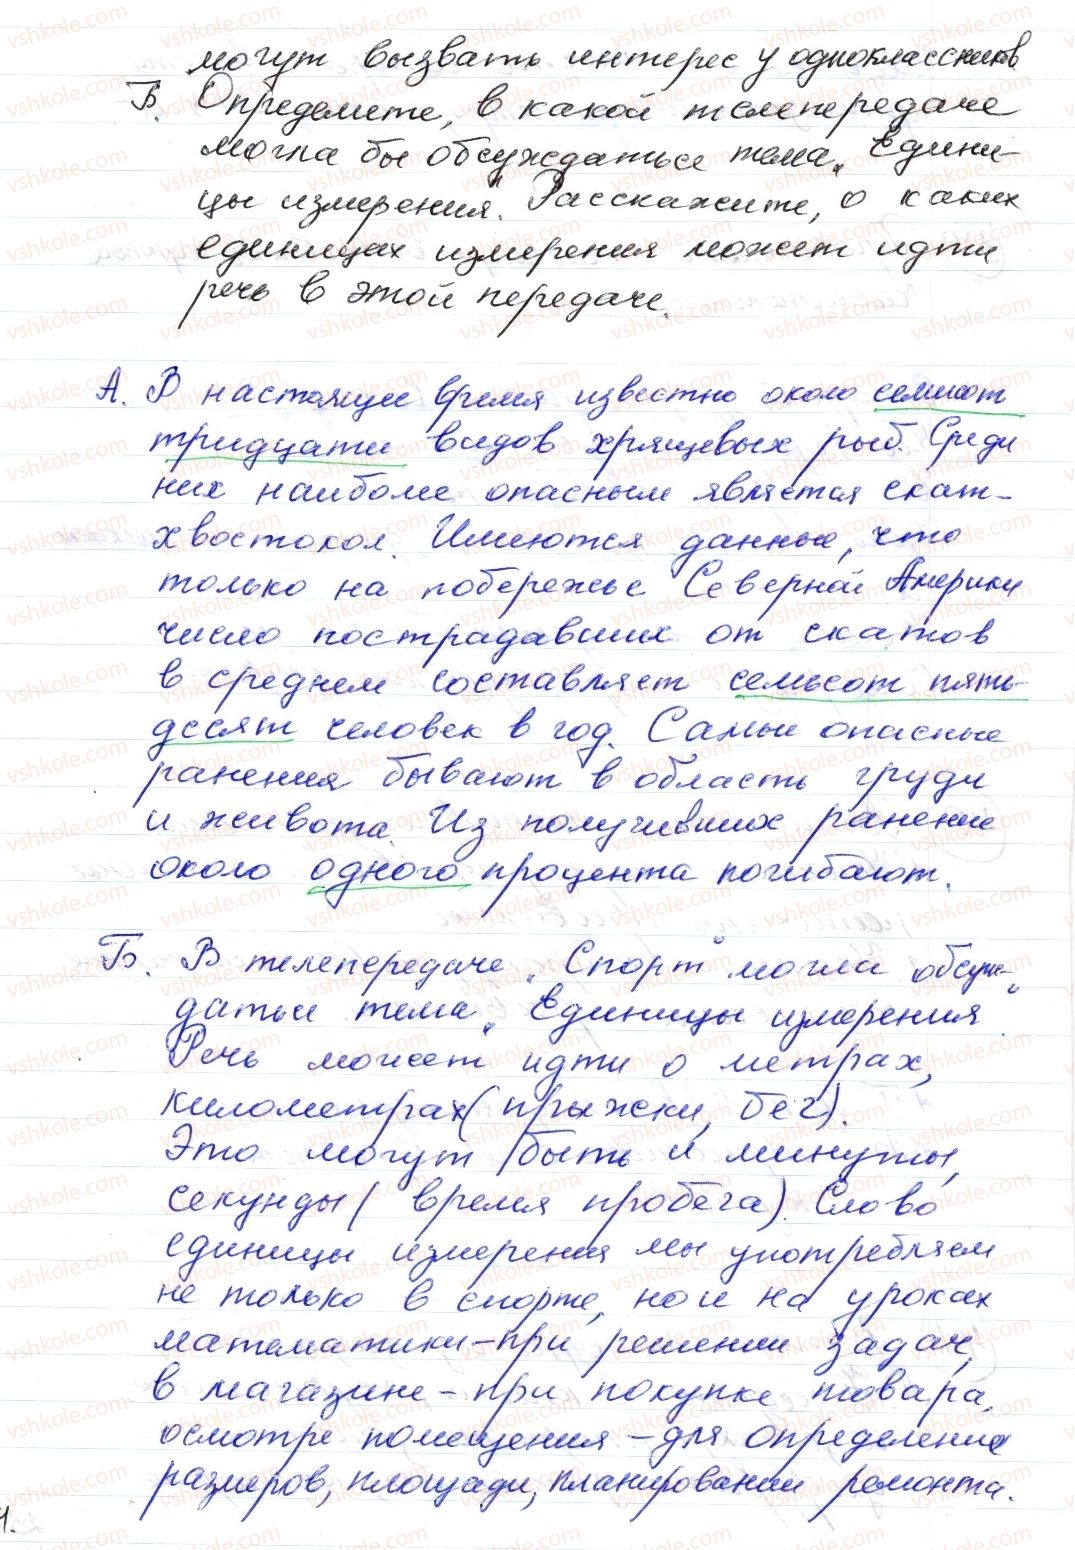 могут вызвать интерес у одноклассников
Б. Определите, в какой телепередаче
могла бы обсуждаться тема „Едини-
цы измерения". Расскажите, о каких
единицах измерения может идти
речь в этой передаче.
А. В настоящее время известно около семисот
тридцати видов хрящевых рыб. Среди
них наиболее опасным является скат-
хвостокол. Имеются данные, что
только на побережье Северной Америки
число пострадавших от скатов
в среднем составляет семьсот пять-
десят человек в год. Самые опасные
ранения бывают в область груди
и живота. Из получивших ранение
около одного процента погибают.
Б. В телепередаче „Спорт" могла обсуж-
даться тема „Единицы измерения".
Речь может идти о метрах,
километрах (прыжки, бег).
Это могут быть и минуты,
секунды (время пробега). Слово
единицы измерения мы употребляем
не только в спорте, но и на уроках
математики – при решении задач,
в магазине – при покупке товара,
осмотре помещения – для определения
размеров, площади, планировании ремонта.